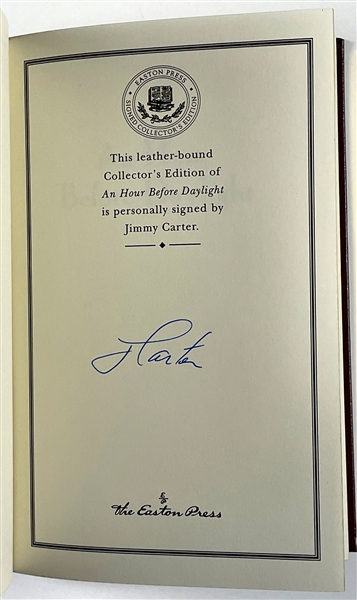 EASTON PRESS
SIGNED COLLECTOR'S EDITION
This leather-bound
Collector's Edition of
An Hour Before Daylight
is personally signed by
Jimmy Carter.
J Carter
The Easton Press